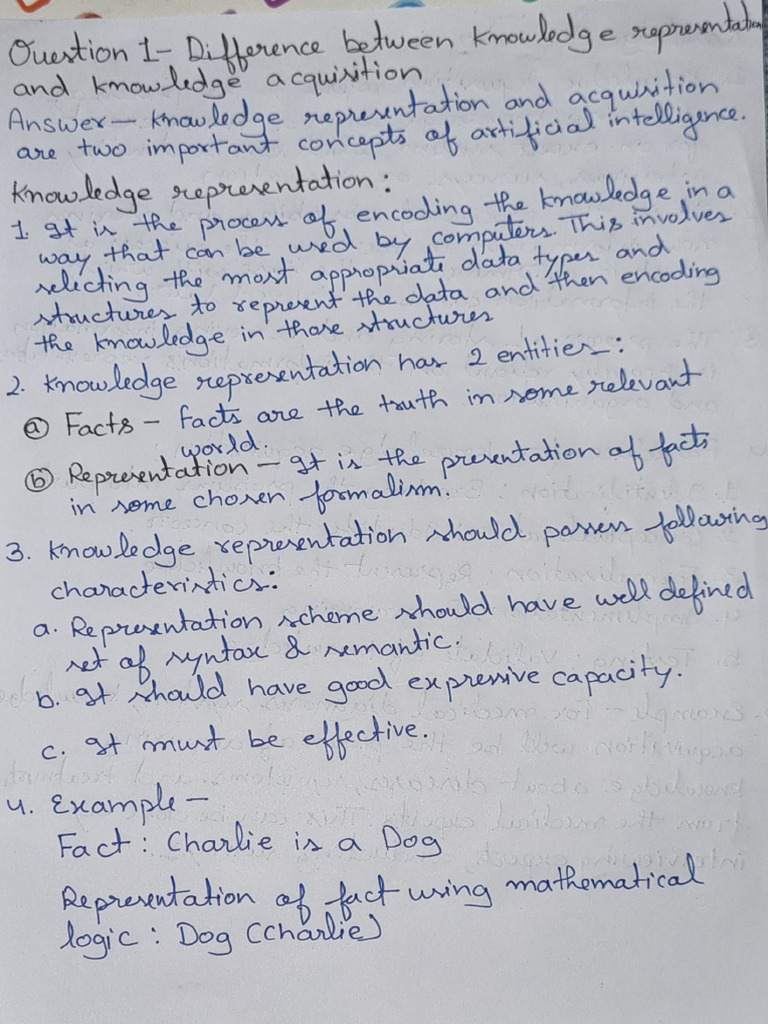 Question 1- Difference between knowledge representation
and knowledge acquisition
Answer- knowledge representation and acquisition
are two important concepts of artificial intelligence.
Knowledge representation:
1. It is the process of encoding the knowledge in a
way that can be used by computers. This involves
selecting the most appropriate data types and
structures to represent the data and then encoding
the knowledge in those structures
2. Knowledge representation has 2 entities:
ⓐ Facts - Facts are the truth in some relevant
world.
ⓑ Representation - It is the presentation of facts
in some chosen formalism.
3. Knowledge representation should possess following
characteristics:
a. Representation scheme should have well defined
set of syntax & semantic.
b. It should have good expressive capacity.
c. It must be effective.
4. Example -
Fact : Charlie is a Dog
Representation of fact using mathematical
logic : Dog (Charlie)